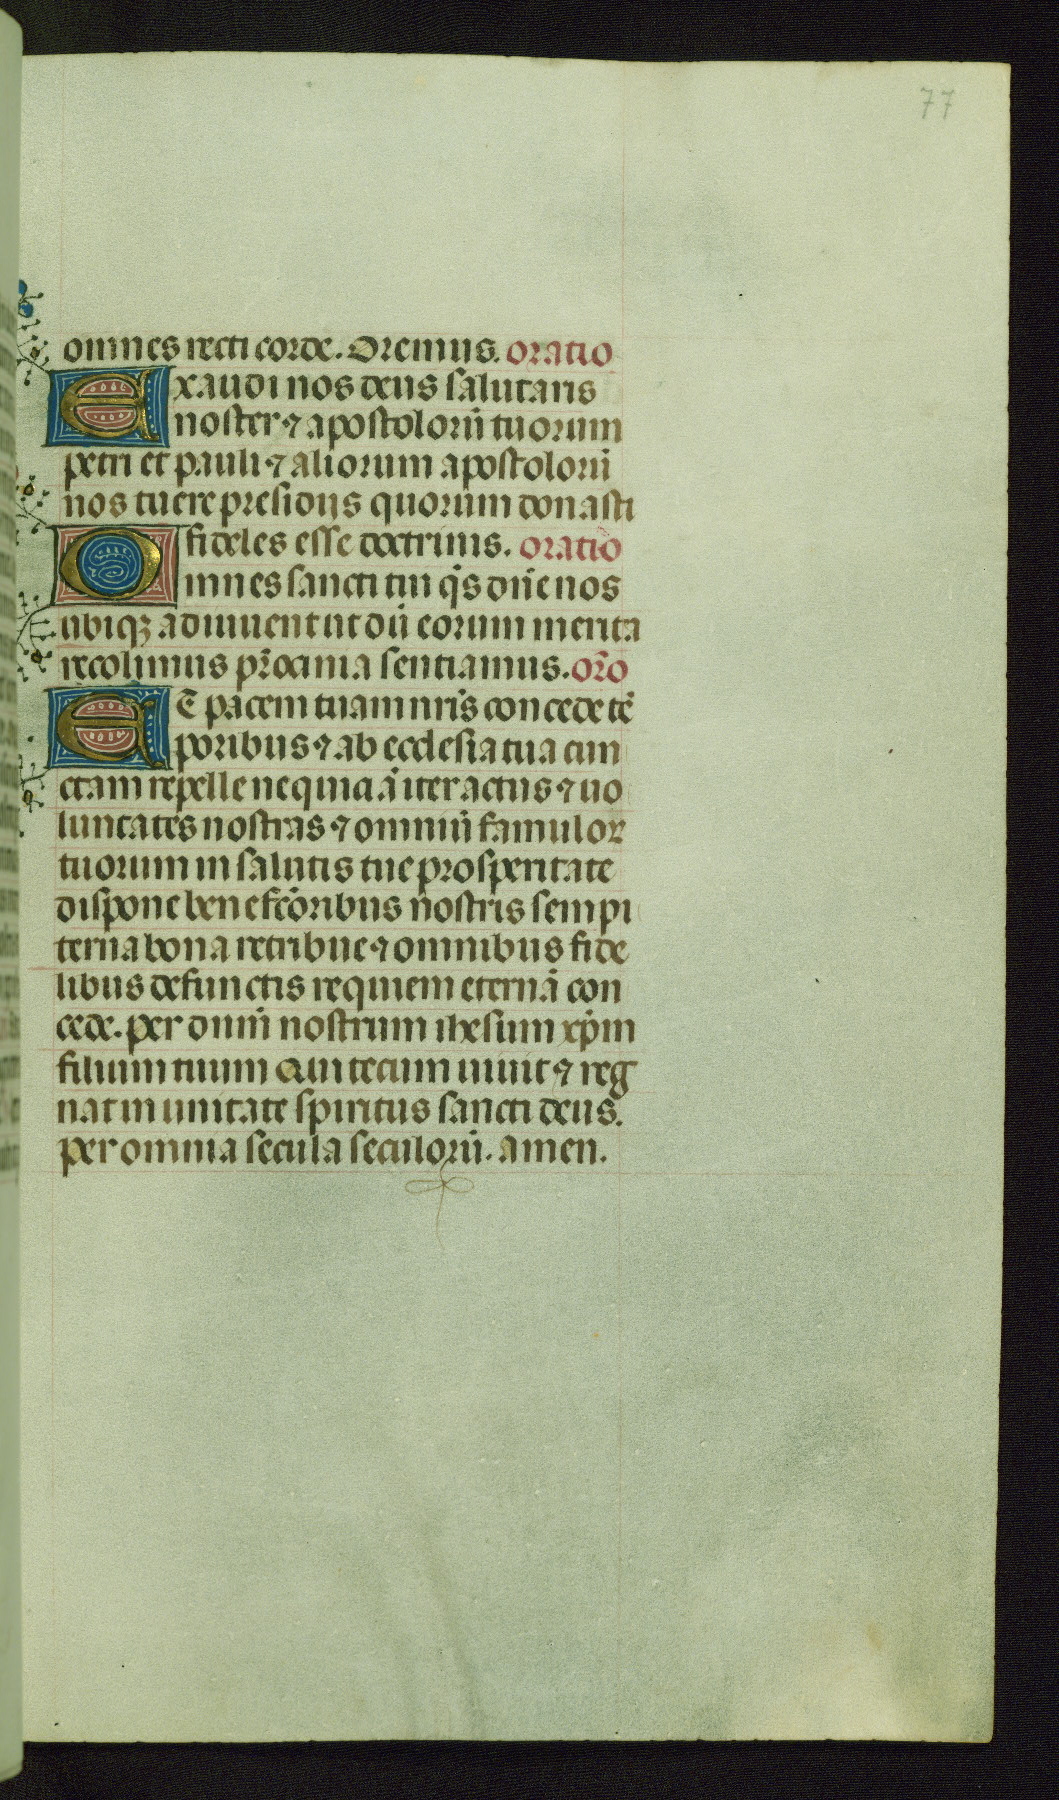 77
omnes recti corde. Oremus. oratio
Exaudi nos deus salutaris
noster ⁊ apostolorū tuorum
petri et pauli ⁊ aliorum apostolorū
nos tuere presidijs quorum donasti
fideles esse doctrinis. oratio
Omnes sancti tui q̄s dn̄e nos
ubiqꝫ adiuuent ut dū eorum merita
recolimus pr̄ocinia sentiamus. or̄o
Et pacem tuam nr̄is concede tē
poribus ⁊ ab ecclesia tua cun
ctam repelle nequiciā iter actus ⁊ uo
luntates nostras ⁊ omniū famuloꝝ
tuorum in salutis tue prosperitate
dispone benefc̄oribus nostris sempi
terna bona retribue ⁊ omnibus fide
libus defunctis requiem eternā con
cede. per dnm̄ nostrum ihesum xp̄m
filium tuum Qui tecum uiuit ⁊ reg
nat in unitate spiritus sancti deus.
per omnia secula seculorū. Amen.